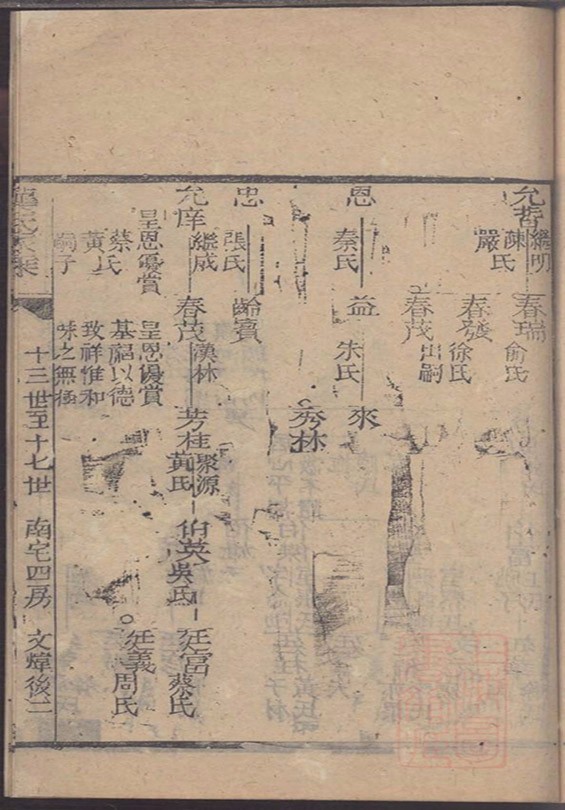 允哲
繼明
陳氏
嚴氏
春瑞
俞氏
春發
徐氏
春茂
出嗣
恩
秦氏
益
朱氏
來
秀林
忠
張氏
齡賓
允庠
繼成
呈恩優賞
蔡氏
黃氏
嗣子
春茂
漢林
呈恩優賞
基福以德
致祥惟和
味之無極
芳桂
聚源
黃氏
伯英
吳氏
廷富
蔡氏
廷義
周氏
十三世至十七世 南宅四房 文煒後二